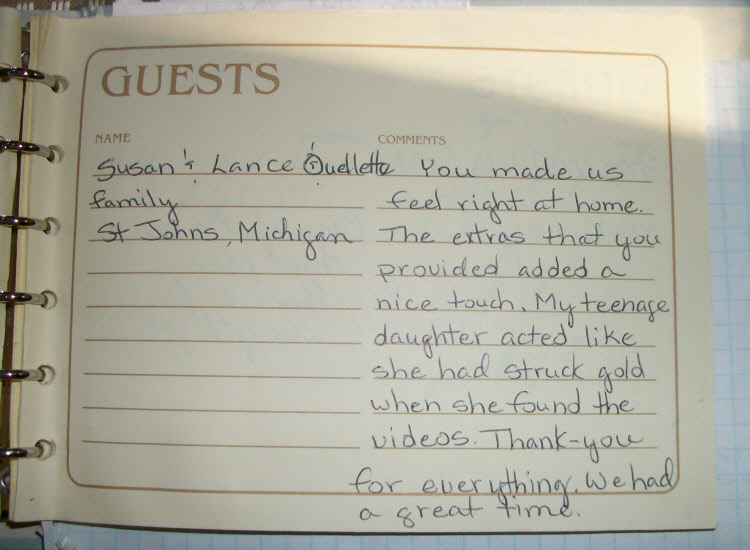 GUESTS
NAME
COMMENTS
Susan & Lance Ouellette
family
St Johns, Michigan
You made us
feel right at home.
The extras that you
provided added a
nice touch. My teenage
daughter acted like
she had struck gold
when she found the
videos. Thank-you
for everything. We had
a great time.